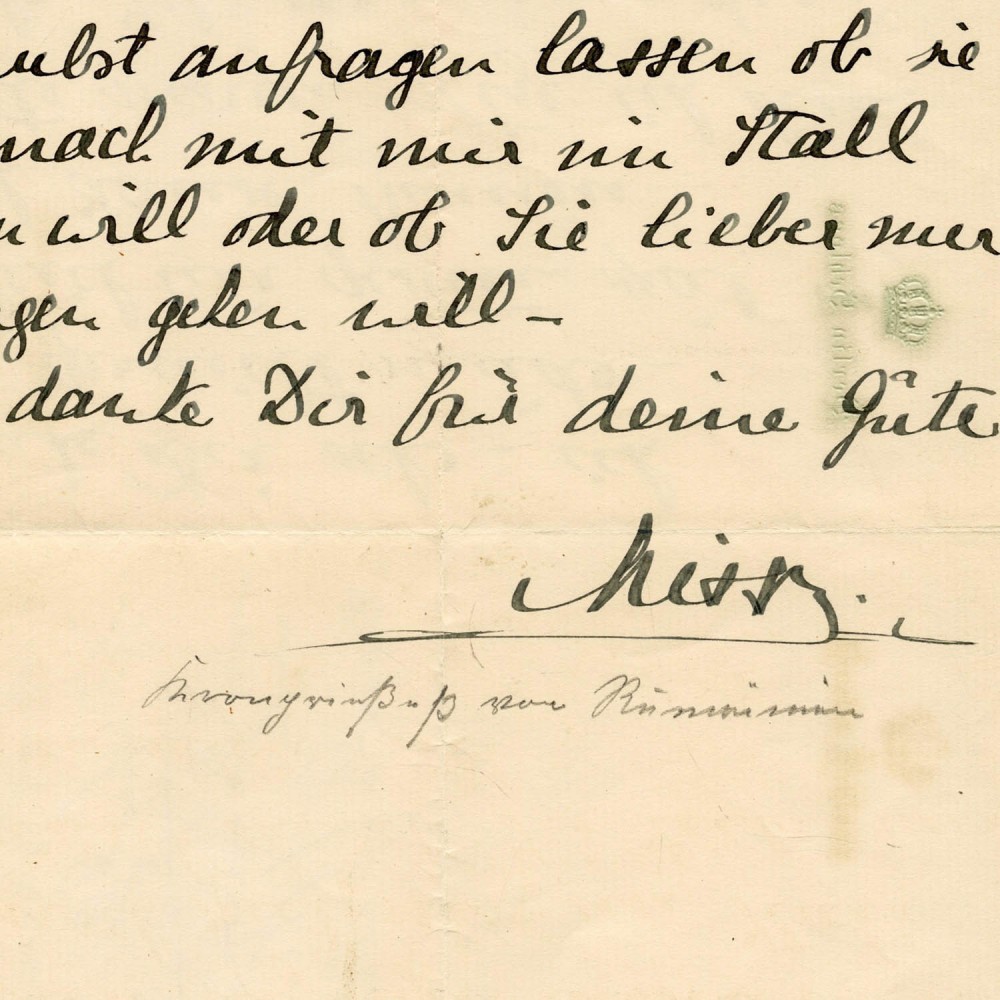 ubst anfragen lassen ob sie
nach mit mir im Stall
n will oder ob Sie lieber nur
gen gehen will–
danke Dir für deine Güte
Missy.
Kronprinzeß von Rumänien